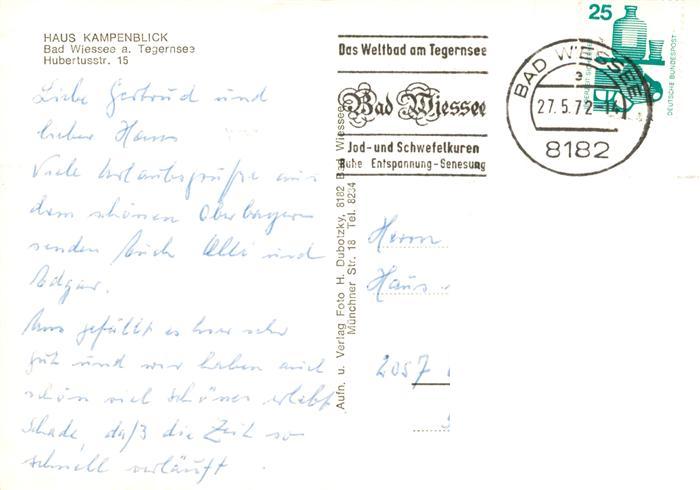 HAUS KAMPENBLICK
Bad Wiessee a. Tegernsee
Hubertusstr. 15
Liebe Gertrud und
lieber Hans
Viele Urlaubsgrüße aus
dem schönen Oberbayern
senden Euch Elli und
Edgar.
Uns gefällt es hier sehr
gut und wir haben auch
schon viel schönes erlebt
Schade, daß die Zeit so
schnell verläuft.
Aufn. u. Verlag Foto H. Dubotzky, 8182 Bad Wiessee
Münchner Str. 18 Tel. 8234
Das Weltbad am Tegernsee
Bad Wiessee
Jod- und Schwefelkuren
Ruhe Entspannung-Genesung
25
DEUTSCHE BUNDESPOST
BAD WIESSEE
3
27.5.72-14
8182
Herrn
Hans
2057